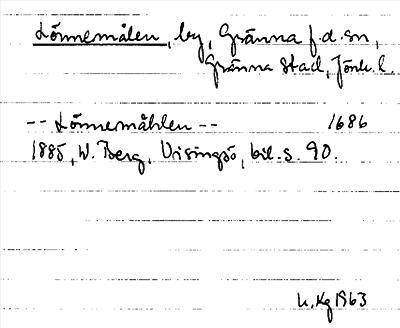 Lönnemålen, by, Gränna f.d. sn,
Gränna stad, Jönk. l.
-- Lönnemåhlen -- 1686
1885, W. Berg, Visingsö, bil. s. 90.
1963